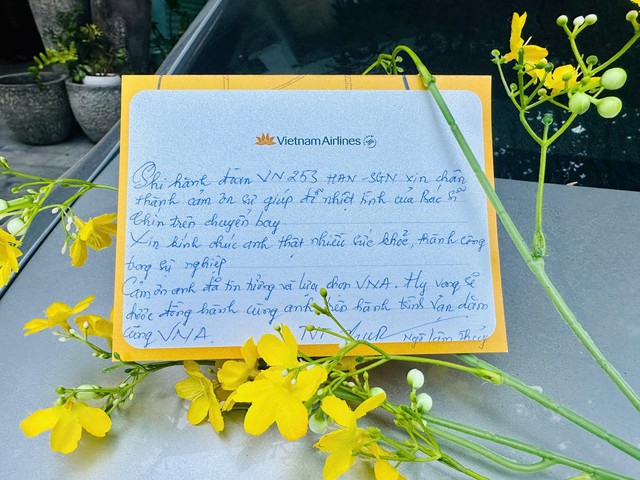 Vietnam Airlines
Phi hành đoàn VN 253 HAN-SGN xin chân
thành cảm ơn sự giúp đỡ nhiệt tình của Bác sĩ
Thìn trên chuyến bay
Xin kính chúc anh thật nhiều sức khỏe, thành công
trong sự nghiệp
Cảm ơn anh đã tin tưởng và lựa chọn VNA. Hy vọng sẽ
được đồng hành cùng anh trên hành trình vạn dặm
cùng VNA.
Ngô Lâm Thủy